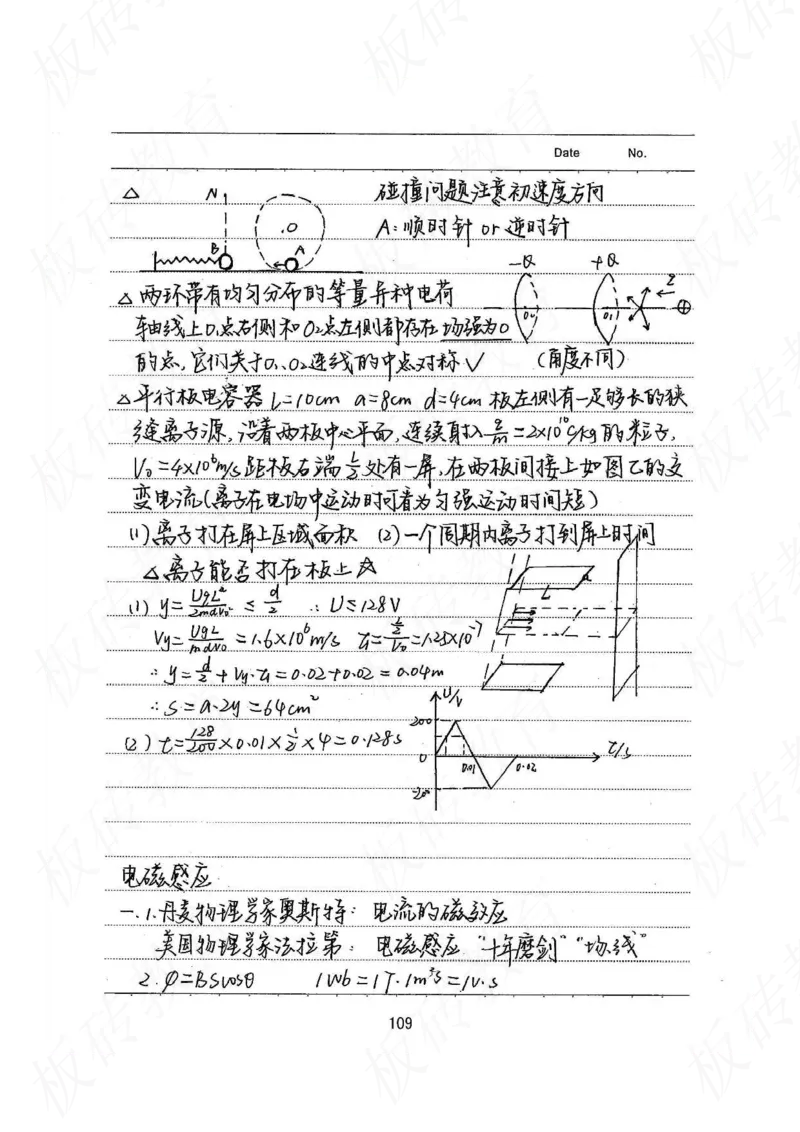 Date No.
△ N 碰撞问题注意初速度方向
.O A:顺时针 or 逆时针
B A
-Q +Q
△ 两环带有均匀分布的等量异种电荷
O₂ O₁
轴线上O₁点右侧和O₂点左侧都存在场强为0
的点,它们关于O₁、O₂连线的中点对称√ (角度不同)
△平行板电容器 L=10cm a=8cm d=4cm 板左侧有一足够长的狭
缝离子源,沿着两板中心平面,连续射入 q/m=2×10¹⁰C/kg的粒子,
V₀=4×10⁶m/s 距板右端 L/2 处有一屏,在两板间接上如图乙的交
变电流(离子在电场中运动时可看为匀强运动时间短)
(1)离子打在屏上区域面积 (2)一个周期内离子打到屏上时间
△离子能否打在板上☆
(1) y=UqL²/2mdv₀² ≤ d/2 ∴U≤128V
L a
Vy=UqL/mdv₀ =1.6×10⁶m/s t₁=(L/2)/V₀=1.25×10⁻⁷
∴y=d/2+Vy·t₁=0.02+0.02=0.04m
∴S=a·2y=64cm²
(2) t=128/200×0.01×1/2×4=0.128s
U/V
200
0 0.01 0.02 t/s
-200
电磁感应
一.1.丹麦物理学家奥斯特: 电流的磁效应
美国物理学家法拉第: 电磁感应 “十年磨剑” “场、线”
2.φ=BScosθ 1Wb=1T·1m²s=1V·s
109
板砖教育